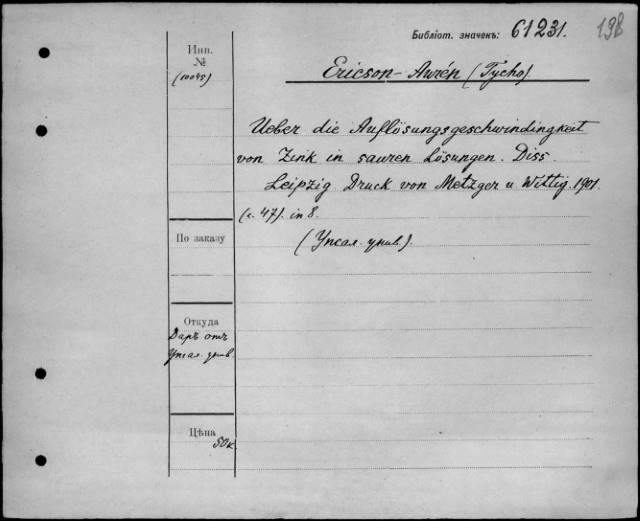 Библіот. значекъ: 61231. 198
Инв.
№
(10045)
Ericson-Aurén (Tycho)
Ueber die Auflösungsgeschwindingkeit
von Zink in sauren Lösungen. Diss.
Leipzig Druck von Metzger u. Wittig. 1901.
(с. 47). in 8.
По заказу
(Упсал. унив.).
Откуда
Даръ отъ
Упсал. унив.
Цѣна
50 к.